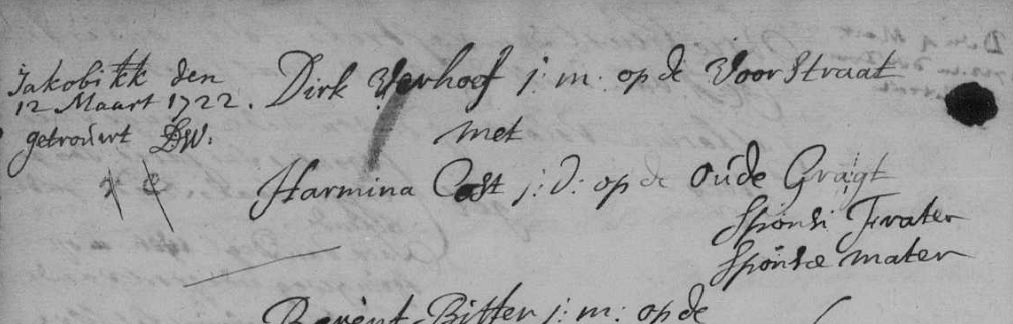 Jakobi kk den
12 Maart 1722.
getrouwt DW.
Dirk Verhoef j: m: op de Voor Straat
met
Harmina Cost j: d: op de Oude Gragt
Sponsi Frater
Sponsæ mater
Berent Bitter j: m: op de